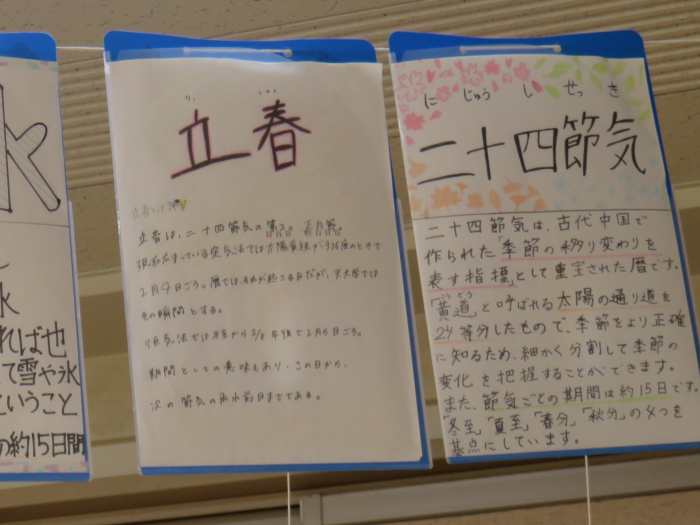 k
水
れば也
て雪や氷
ということ
の約15日間
りっ しゅん
立春
立春とは
立春は、二十四節気の第1、正月節
現在広まっている定気法では太陽黄経が315度のときで
2月4日ごろ。暦では、それが起こる日だが、天文学では
その瞬間とする。
恒気法では冬至から 年後で2月5日ごろ。
期間としての意味もあり、この日から、
次の節気の雨水前日までである。
にじゅうしせっき
二十四節気
二十四節気は、古代中国で
作られた「季節の移り変わりを
表す指標」として重宝された暦です。
こうどう
「黄道」と呼ばれる太陽の通り道を
24等分したもので、季節をより正確
に知るため、細かく分割して季節の
変化を把握することができます。
また、節気ごとの期間は約15日です。
「冬至」、「夏至」、「春分」、「秋分」の4つを
基点にしています。